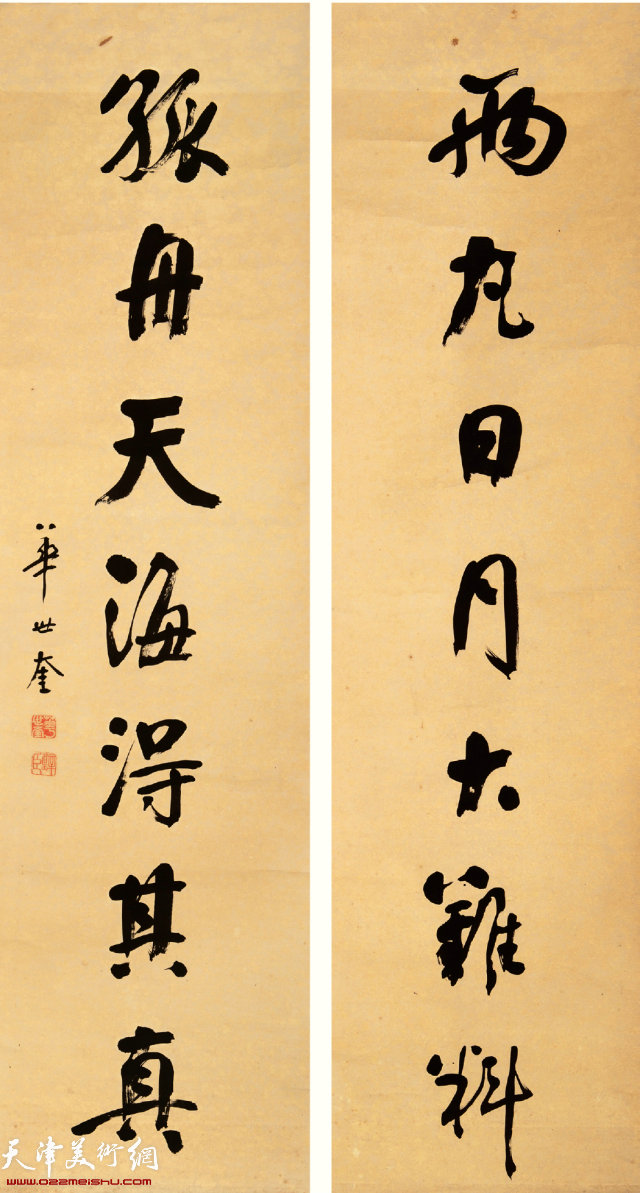 兩丸日月大難料
孤舟天海得其真
華世奎
天津美術網
www.022meishu.com